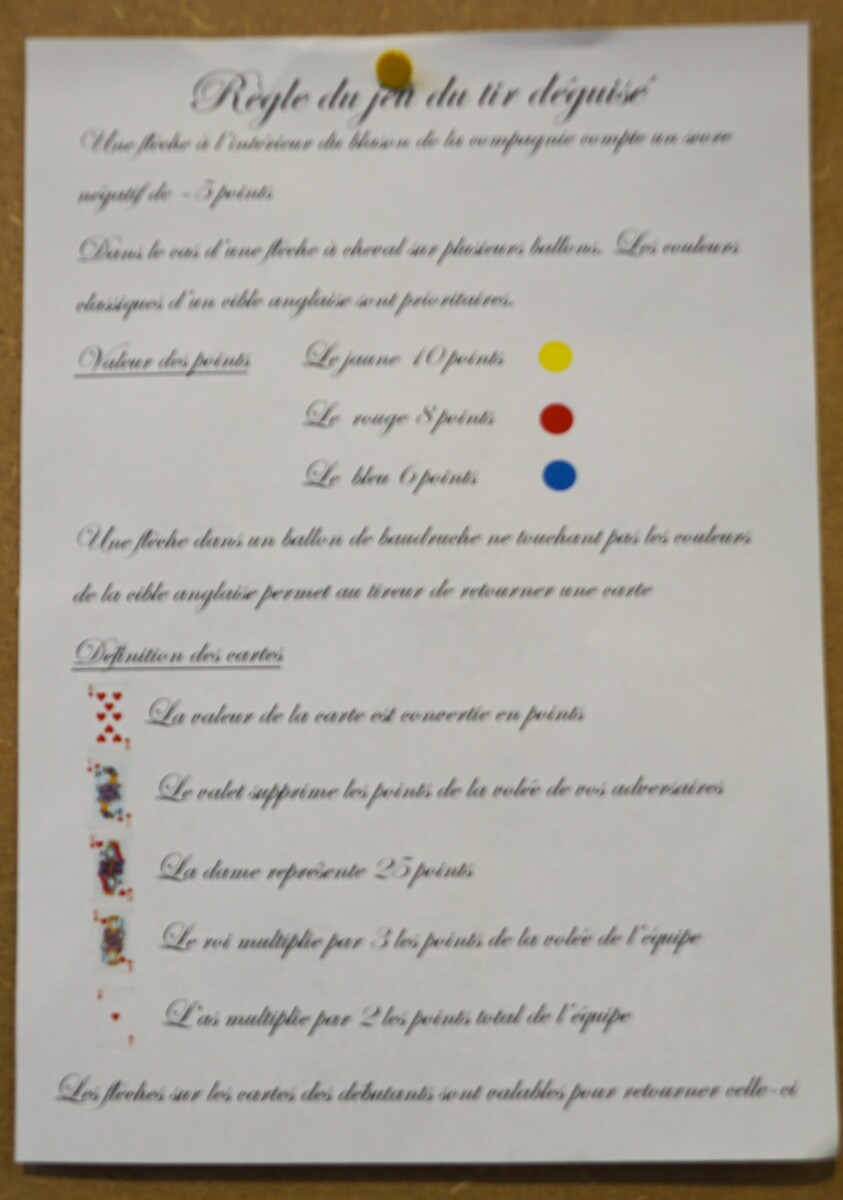 Règle du jeu du tir déguisé
Une flèche à l'intérieur du blason de la compagnie compte un score
négatif de -5 points
Dans le cas d'une flèche à cheval sur plusieurs ballons. Les couleurs
classiques d'un cible anglaise sont prioritaires.
Valeur des points Le jaune 10 points
Le rouge 8 points
Le bleu 6 points
Une flèche dans un ballon de baudruche ne touchant pas les couleurs
de la cible anglaise permet au tireur de retourner une carte
Définition des cartes
La valeur de la carte est convertie en points
Le valet supprime les points de la volée de vos adversaires
La dame représente 25 points
Le roi multiplie par 3 les points de la volée de l'équipe
L'as multiplie par 2 les points total de l'équipe
Les flèches sur les cartes des débutants sont valables pour retourner celle-ci